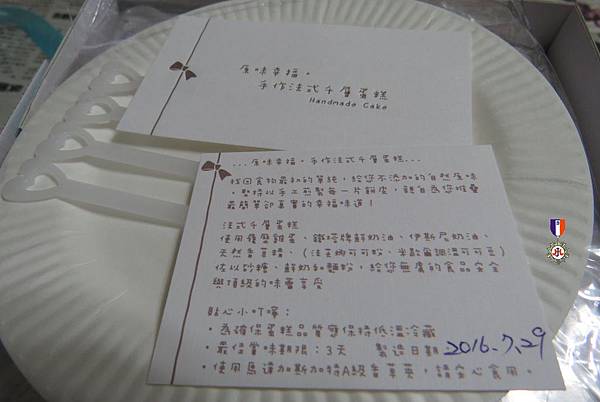 原味幸福。
手作法式千層蛋糕
Handmade Cake
...原味幸福。手作法式千層蛋糕...
找回食物最初的單純,給您不添加的自然原味
,堅持以手工煎製每一片餅皮,親自為您堆疊
最簡單卻真實的幸福味道!
法式千層蛋糕
使用優質雞蛋、鐵塔牌鮮奶油、伊斯尼奶油、
天然香草精、(法芙娜可可粉、米歇爾調溫可可豆)
佐以砂糖、鮮奶和麵粉,給您無慮的食品安全
與頂級的味蕾享受
貼心小叮嚀:
・為確保蛋糕品質應保持低溫冷藏
・最佳賞味期限:3天 製造日期 2016.7.29
・使用馬達加斯加特A級香草莢,請安心食用。